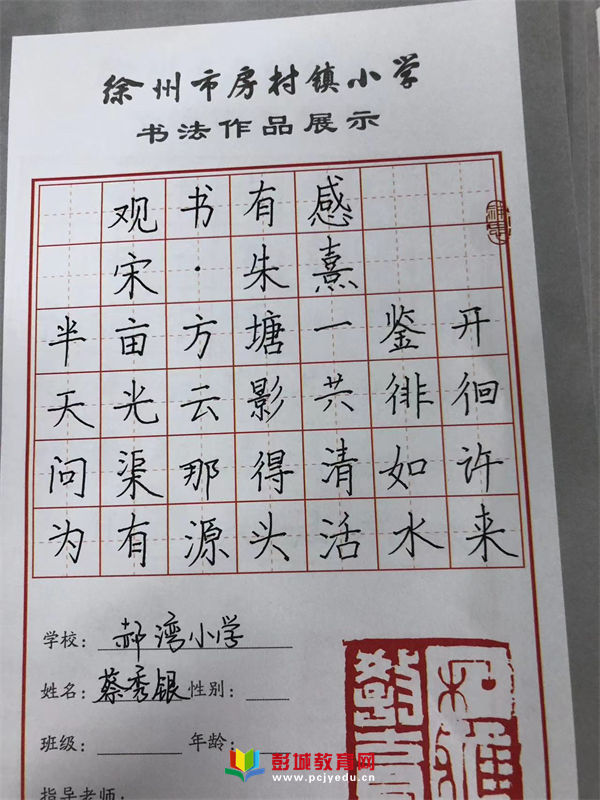 徐州市房村镇小学
书法作品展示
观书有感
宋·朱熹
半亩方塘一鉴开
天光云影共徘徊
问渠那得清如许
为有源头活水来
学校：郝湾小学
姓名：蔡秀银 性别：
班级： 年龄：
指导老师：
彭城教育网
www.pcjyedu.cn